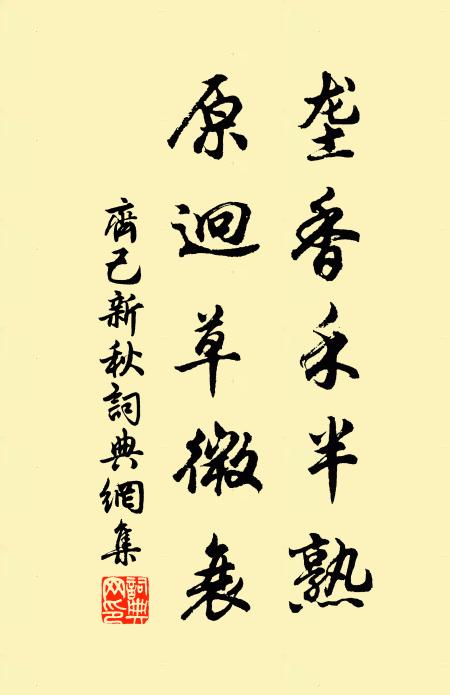 垄香禾半熟
原迥草微衰
齊己新秋詞典網集
詞典